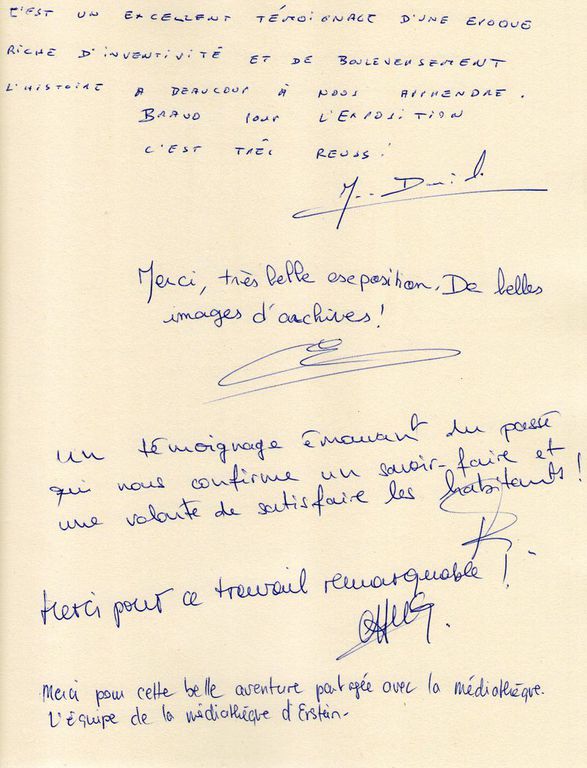 C'EST UN EXCELLENT TÉMOIGNAGE D'UNE EPOQUE
RICHE D'INVENTIVITÉ ET DE BOULEVERSEMENT
L'HISTOIRE A BEAUCOUP À NOUS APPRENDRE.
BRAVO POUR L'EXPOSITION
C'EST TRÈS REUSSI!
Merci, très belle exposition. De belles
images d'archives!
un témoignage émanant du passé
qui nous confirme un savoir-faire et
une volonté de satisfaire les habitants!
Merci pour ce travail remarquable!
Merci pour cette belle aventure partagée avec la médiathèque.
L'Équipe de la médiathèque d'Erstein.